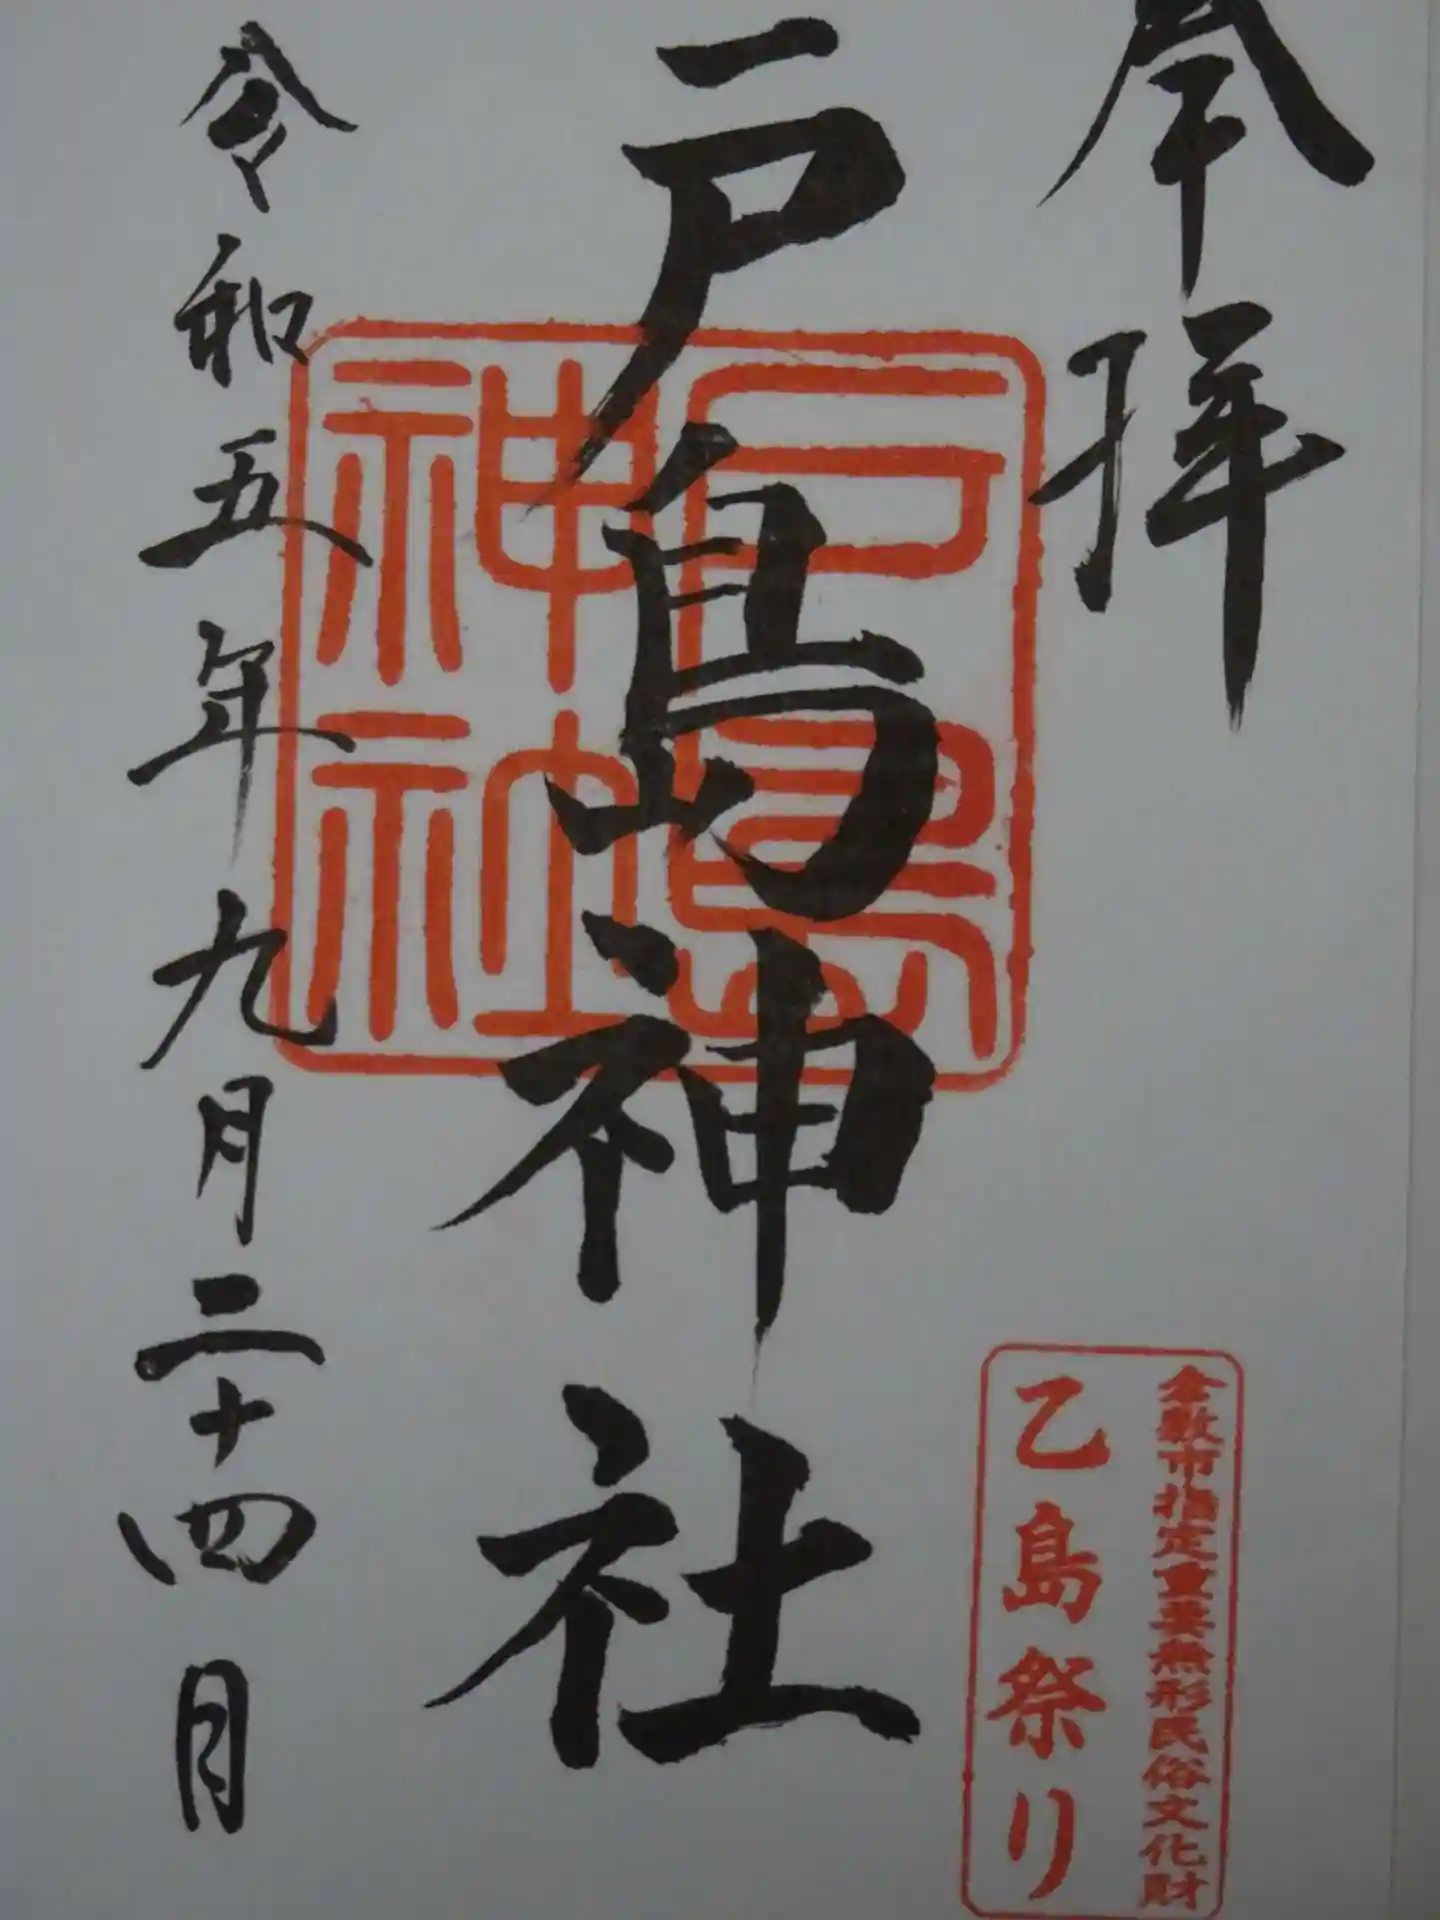 奉拝
倉敷市指定重要無形民俗文化財
乙島祭り
戸島神社
戸島
神社
令和五年九月二十四日